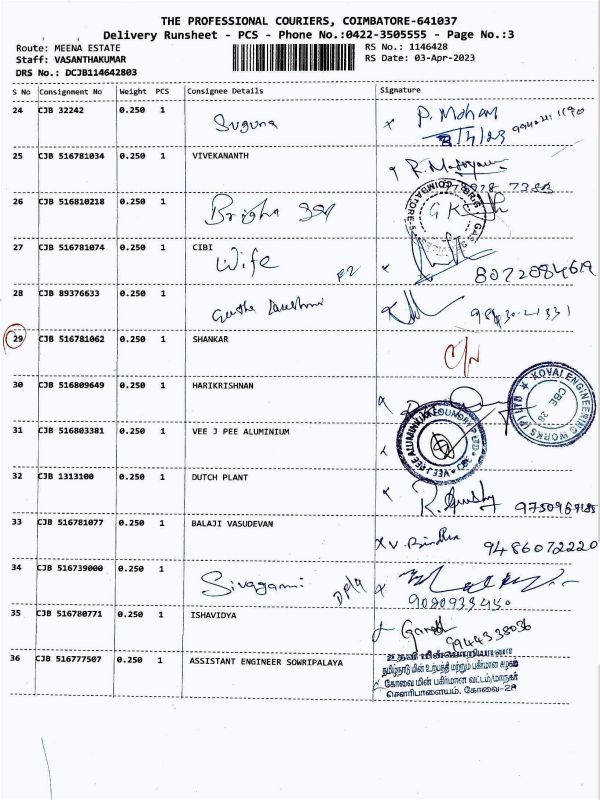 THE PROFESSIONAL COURIERS, COIMBATORE-641037
Delivery Runsheet - PCS - Phone No.:0422-3505555 - Page No.:3
Route: MEENA ESTATE
RS No.: 1146428
Staff: VASANTHAKUMAR
RS Date: 03-Apr-2023
DRS No.: DCJB114642803
S No Consignment No Weight PCS Consignee Details Signature
24 CJB 32242 0.250 1 Suguna x P. Mohan
3/4/23
25 CJB 516781034 0.250 1 VIVEKANANTH
26 CJB 516810218 0.250 1
27 CJB 516781074 0.250 1 CIBI
Wife
28 CJB 89376633 0.250 1
29 CJB 516781062 0.250 1 SHANKAR
30 CJB 516809649 0.250 1 HARIKRISHNAN
KOVAI ENGINEERING WORKS (P) LTD
31 CJB 516803381 0.250 1 VEE J PEE ALUMINIUM
VEE J PEE ALUMINIUM FOUNDRY P LTD CBE
32 CJB 1313100 0.250 1 DUTCH PLANT
33 CJB 516781077 0.250 1 BALAJI VASUDEVAN
x V. Bindha 9486072220
34 CJB 516739000 0.250 1 Sivagami
35 CJB 516780771 0.250 1 ISHAVIDYA Ganesh
9944338036
36 CJB 516777507 0.250 1 ASSISTANT ENGINEER SOWRIPALAYA
உதவி மின்பொறியாளர்
தமிழ்நாடு மின் உற்பத்தி மற்றும் பகிர்மான கழகம்
கோவை மின் பகிர்மான வட்டம்/மாநகர்
சௌரிபாளையம், கோவை-28